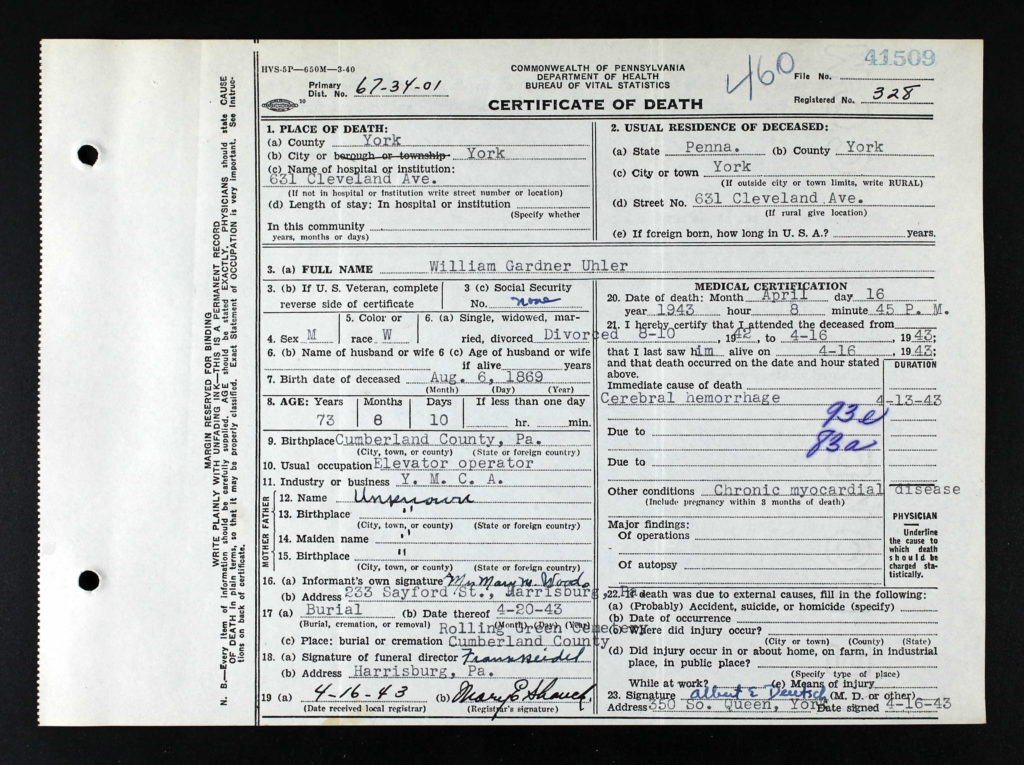 41509
HVS-5P—650M—3-40
COMMONWEALTH OF PENNSYLVANIA
DEPARTMENT OF HEALTH
BUREAU OF VITAL STATISTICS
CERTIFICATE OF DEATH
Primary Dist. No. 67-34-01
460
File No.
Registered No. 328
MARGIN RESERVED FOR BINDING
WRITE PLAINLY WITH UNFADING INK—THIS IS A PERMANENT RECORD
N. B.—Every item of information should be carefully supplied. AGE should be stated EXACTLY. PHYSICIANS should state CAUSE
OF DEATH in plain terms, so that it may be properly classified. Exact Statement of OCCUPATION is very important. See instruc-
tions on back of certificate.
1. PLACE OF DEATH:
(a) County York
(b) City or borough or township York
(c) Name of hospital or institution:
631 Cleveland Ave.
(If not in hospital or institution write street number or location)
(d) Length of stay: In hospital or institution
(Specify whether
In this community
years, months or days)
2. USUAL RESIDENCE OF DECEASED:
(a) State Penna. (b) County York
(c) City or town York
(If outside city or town limits, write RURAL)
(d) Street No. 631 Cleveland Ave.
(If rural give location)
(e) If foreign born, how long in U. S. A.? years.
3. (a) FULL NAME William Gardner Uhler
3. (b) If U. S. Veteran, complete reverse side of certificate
3 (c) Social Security No. none
4. Sex M
5. Color or race W
6. (a) Single, widowed, married, divorced Divorced
6. (b) Name of husband or wife
6 (c) Age of husband or wife if alive years
7. Birth date of deceased Aug. 6, 1869
(Month) (Day) (Year)
8. AGE: Years Months Days If less than one day
73 8 10 hr. min.
9. Birthplace Cumberland County, Pa.
(City, town, or county) (State or foreign country)
10. Usual occupation Elevator operator
11. Industry or business Y. M. C. A.
FATHER
12. Name Unknown
13. Birthplace "
(City, town, or county) (State or foreign country)
MOTHER
14. Maiden name "
15. Birthplace "
(City, town, or county) (State or foreign country)
16. (a) Informant's own signature Mrs Mary M. Woods
(b) Address 233 Sayford St., Harrisburg, Pa.
17 (a) Burial (b) Date thereof 4-20-43
(Burial, cremation, or removal) (Month) (Day) (Year)
Rolling Green Cemetery
(c) Place: burial or cremation Cumberland County
18. (a) Signature of funeral director
(b) Address Harrisburg, Pa.
19 (a) 4-16-43 (b) Mary E Shauck
(Date received local registrar) (Registrar's signature)
MEDICAL CERTIFICATION
20. Date of death: Month April day 16
year 1943 hour 8 minute 45 P. M.
21. I hereby certify that I attended the deceased from
8-10, 1942, to 4-16, 1943;
that I last saw him alive on 4-16, 1943;
and that death occurred on the date and hour stated above.
DURATION
Immediate cause of death
Cerebral hemorrhage 4-13-43
93e
Due to
83a
Due to
Other conditions Chronic myocardial disease
(Include pregnancy within 3 months of death)
Major findings:
Of operations
Of autopsy
PHYSICIAN
Underline the cause to which death should be charged statistically.
22. If death was due to external causes, fill in the following:
(a) (Probably) Accident, suicide, or homicide (specify)
(b) Date of occurrence
(c) Where did injury occur?
(City or town) (County) (State)
(d) Did injury occur in or about home, on farm, in industrial
place, in public place?
(Specify type of place)
While at work? (e) Means of injury
23. Signature Albert E Deutsch (M. D. or other)
Address 350 So. Queen, York Date signed 4-16-43